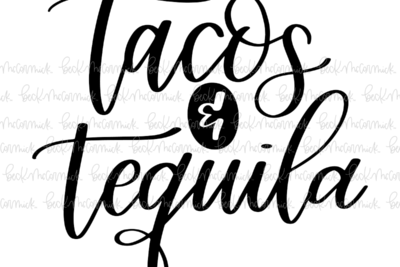 Tacos
&
Tequila